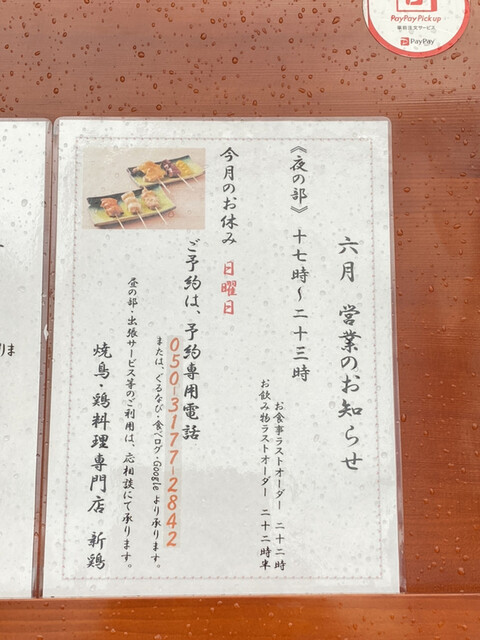 PayPay Pick up
事前注文サービス
PayPay
六月 営業のお知らせ
《夜の部》 十七時~二十三時
お食事ラストオーダー 二十二時
お飲み物ラストオーダー 二十二時半
今月のお休み 日曜日
ご予約は、予約専用電話
050-3177-2842
または、ぐるなび・食べログ・Google より承ります。
昼の部・出張サービス等のご利用は、応相談にて承ります。
焼鳥・鶏料理専門店 新鶏